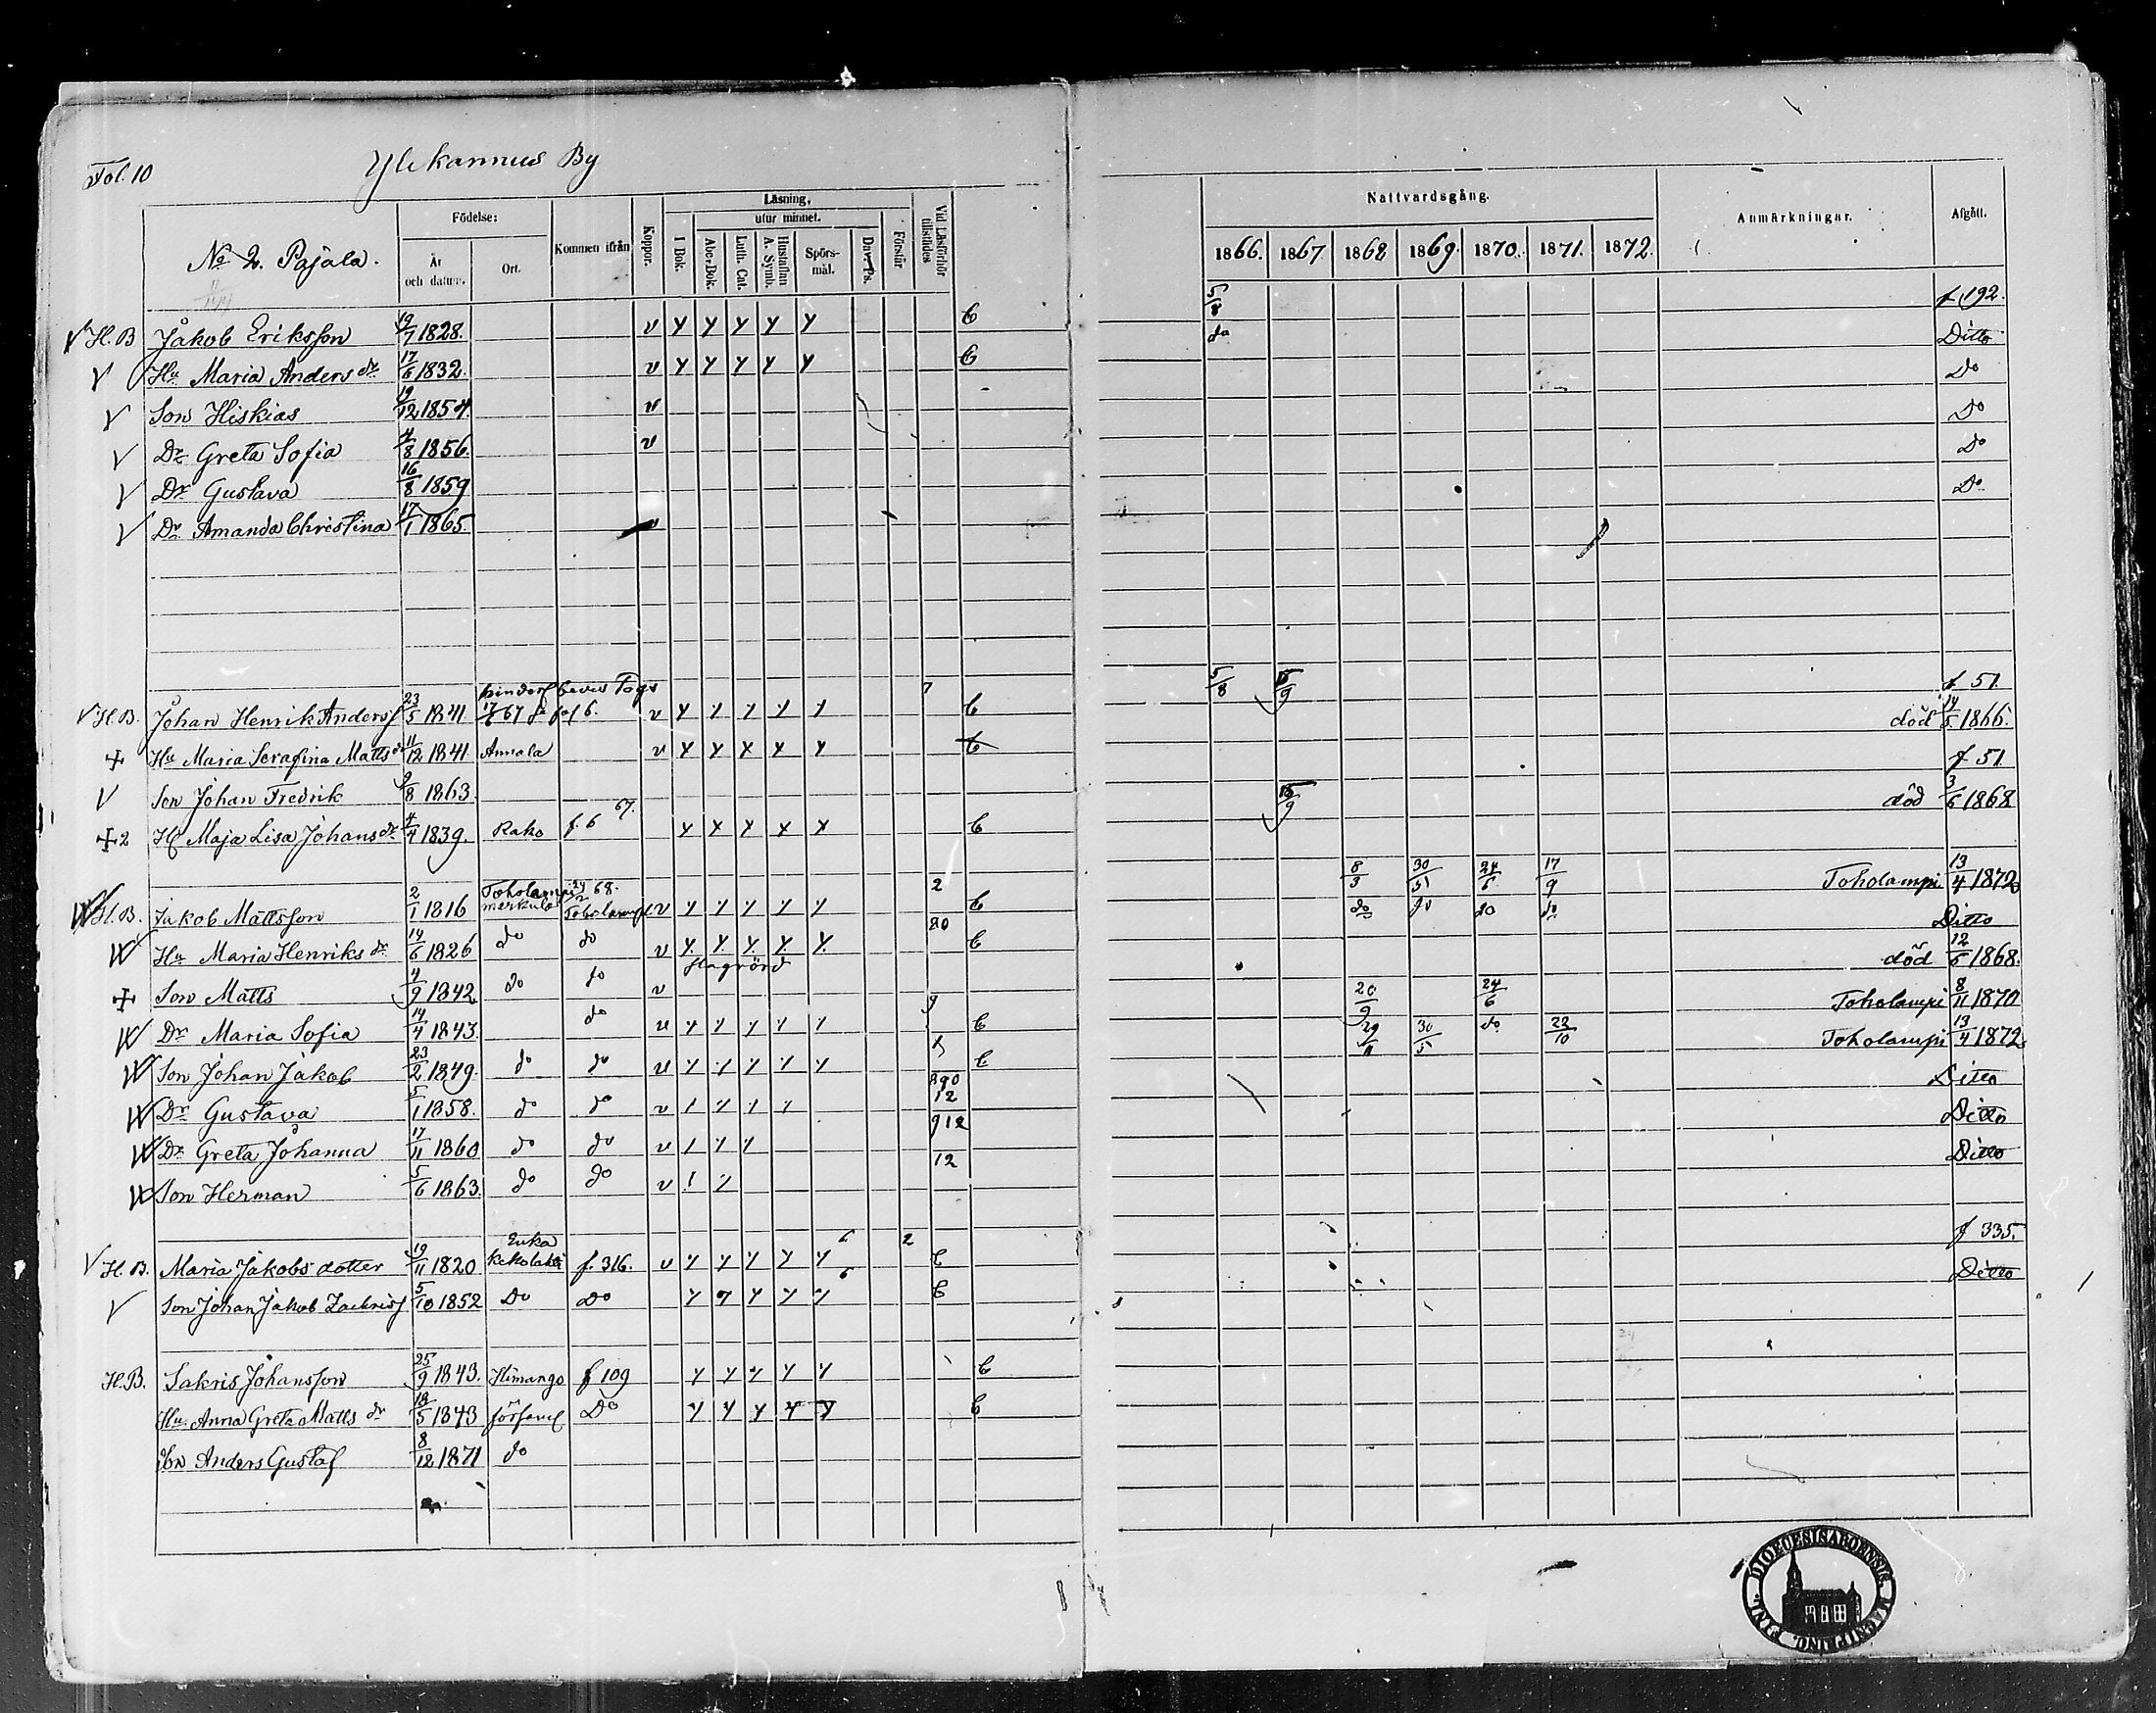 Fol. 10 Ylikannus By
No 2. Pajala.
Födelse:
År och datum.
Ort.
Kommen ifrån
Koppor.
Läsning,
utur minnet.
I Bok.
Abc-Bok.
Luth. Cat.
Hustaflan A. Symb.
Spörsmål.
Dav. Ps.
Förstår
Vid Läsförhör tillstädes
Nattvardsgång.
1866. 1867 1868 1869. 1870. 1871. 1872.
Anmärkningar.
Afgått.
V H.B Jakob Eriksson 19/7 1828. v y y y y y C 5/8 f 192.
V Hu Maria Anders dr 17/6 1832. v y y y y y C do Ditto
V Son Hiskias 19/12 1854. v Do
V Dr Greta Sofia 4/8 1856. v Do
V Dr Gustava 16/8 1859 Do
V Dr Amanda Christina 17/1 1865. v Do
V H.B. Johan Henrik Anders 23/5 1841 v y y y y y 7 C 5/8 f 51
+ Hu Maria Serafina Matts dr 11/12 1841 Annala v y y x x y C död 14/5 1866.
V Son Johan Fredrik 9/8 1863. f 51
+ 2 H Maja Lisa Johans dr 4/4 1839. Rako f. 6 67. y x y x x C död 3/6 1868
H.B. Jakob Mattsson 2/1 1816 Toholampi 68. Toholampi v y y y y y 2 C 30 24/6 17/9 Toholampi 13/4 1872
Hu Maria Henriks dr 14/6 1826 do do v y y y y y 20 C do do do do Ditto
+ Son Matts 4/9 1842 do do v död 12/6 1868.
Dr Maria Sofia 14/4 1843. do v y y y y y 9 C 20/9 24/6 Toholampi 8/11 1870
Son Johan Jakob 23/2 1849. do do v y y y y y C 29/11 30/5 do 22/10 Toholampi 13/4 1872.
Dr Gustava 5/1 1858. do do v 12 Ditto
Dr Greta Johanna 17/11 1860 do do v 912 Ditto
Son Herman 5/6 1863. do do v 12 Ditto
V H.B. Maria Jakobs dotter 19/11 1820 f. 316. v y y y y y 6 2 C f 335.
V Son Johan Jakob Zachriss 5/10 1852 Do Do y y y y y 6 C Ditto
H.B. Sakris Johansson 25/9 1843. Himango f 109 y y y y y C
Hu Anna Greta Matts dr 18/5 1843 Do y y y y y C
Son Anders Gustaf 8/12 1871 do
DIOECESIS ABOENSIS MAGNI PRINC. FINL.